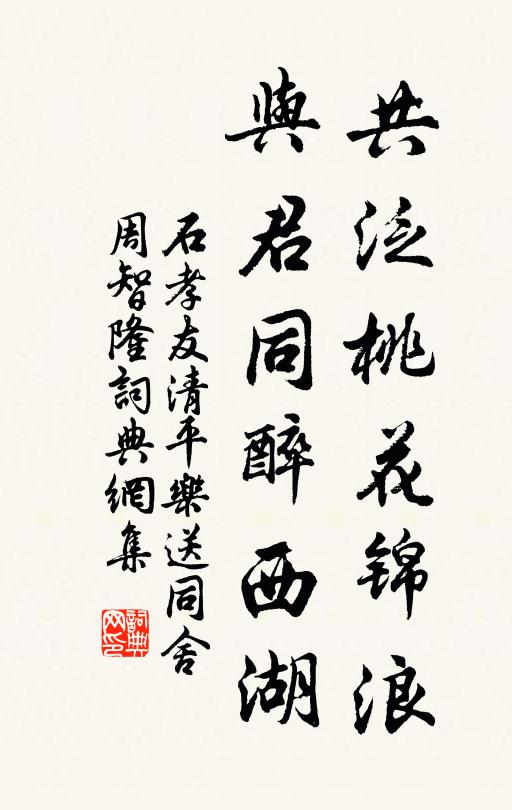 共泛桃花錦浪
與君同醉西湖
石孝友清平樂送同舍
周智隆詞典網集
詞典
网印